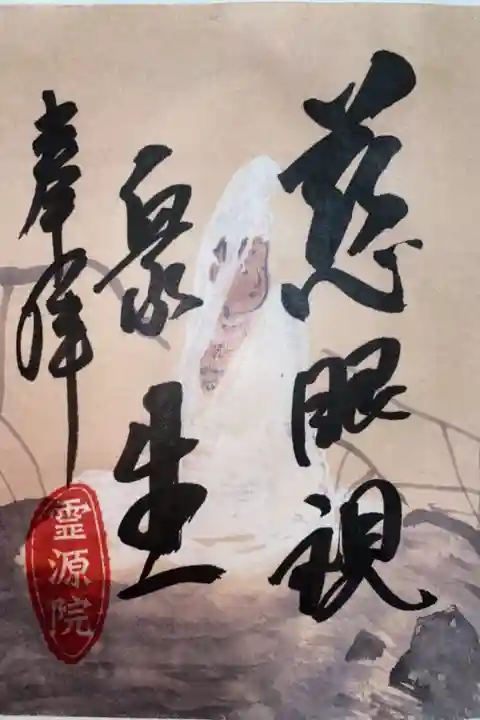 慈眼視
衆生
奉拝
霊源院